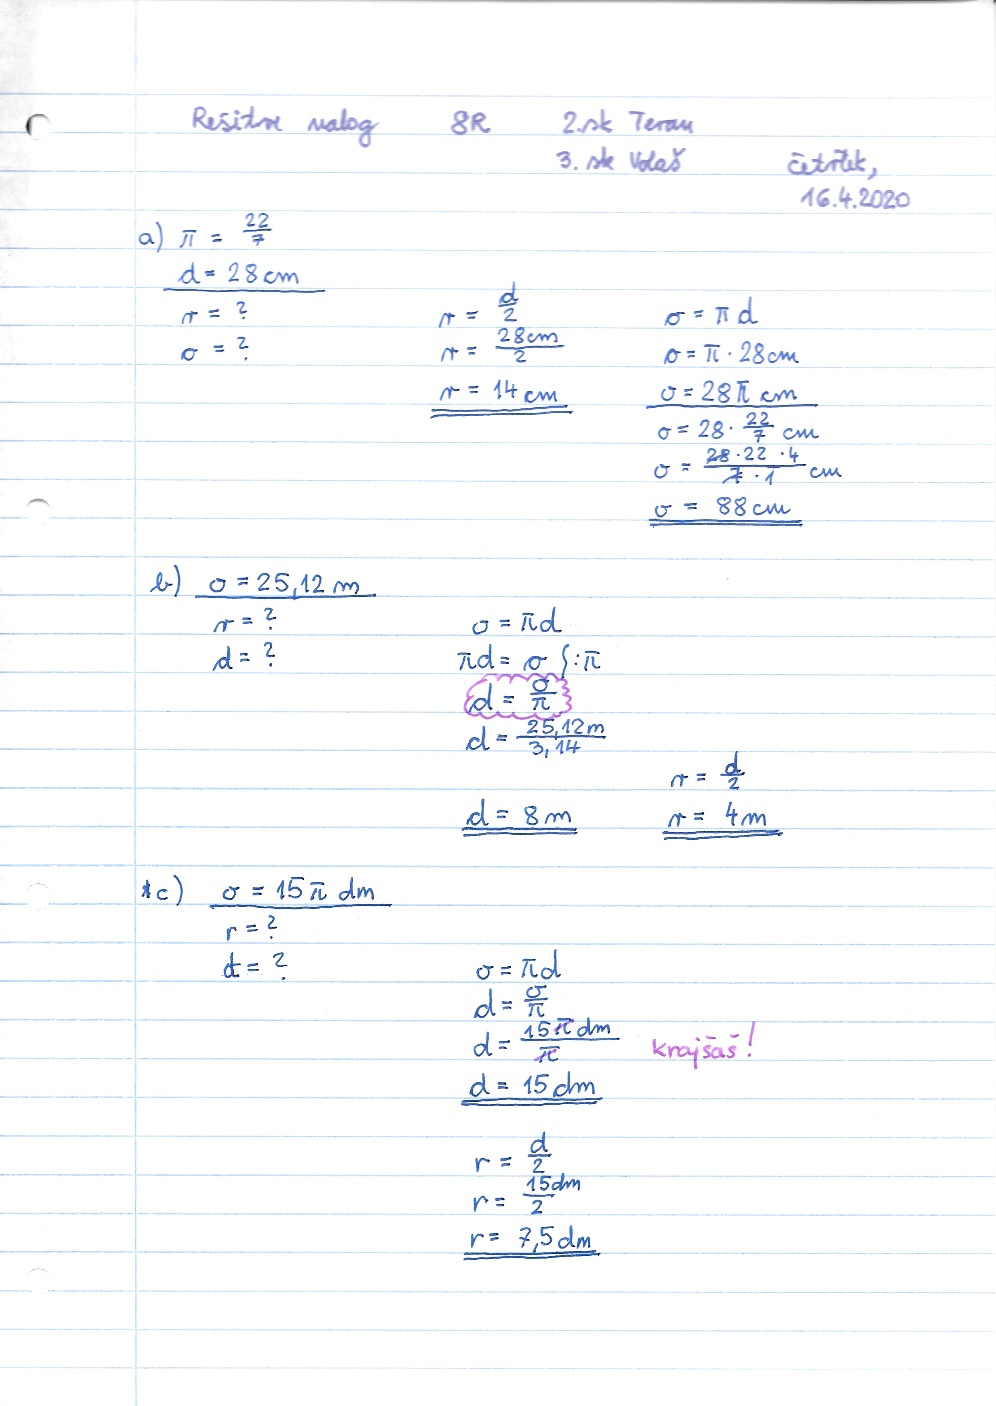 Rešitve nalog 8R 2.sk Teran
3. sk Volaš četrtek,
16.4.2020
a) π = 22/7
d = 28 cm
r = ?
o = ?
r = d/2
r = 28cm/2
r = 14 cm
o = π d
o = π · 28cm
o = 28π cm
o = 28 · 22/7 cm
o = 28 · 22 · 4/7 · 1 cm
o = 88 cm
b) o = 25,12 m
r = ?
d = ?
o = πd
πd = o /:π
d = o/π
d = 25,12m/3,14
d = 8 m
r = d/2
r = 4 m
*c) o = 15 π dm
r = ?
d = ?
o = πd
d = o/π
d = 15π dm/π krajšaš!
d = 15 dm
r = d/2
r = 15dm/2
r = 7,5 dm